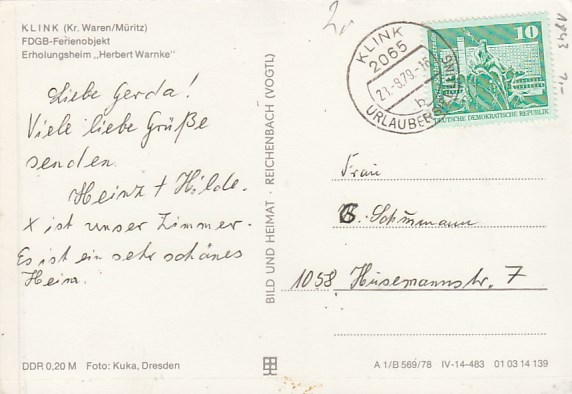 KLINK (Kr. Waren/Müritz)
FDGB-Ferienobjekt
Erholungsheim „Herbert Warnke"
Liebe Gerda!
Viele liebe Grüße
senden
Heinz + Hilde.
X ist unser Zimmer.
Es ist ein sehr schönes
Heim.
DDR 0,20 M Foto: Kuka, Dresden
BILD UND HEIMAT · REICHENBACH (VOGTL)
KLINK
2065
21.-8.79.-16
b
URLAUBER
10
DEUTSCHE DEMOKRATISCHE REPUBLIK
1843
2,-
Frau
G. Schumann
1058 Husemannstr. 7
A 1/B 569/78 IV-14-483 01 03 14 139